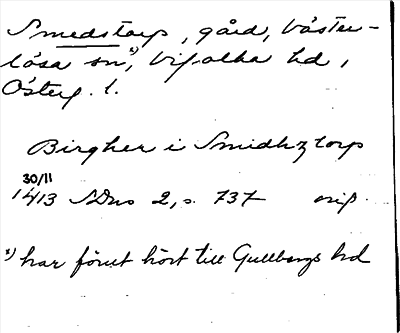 Smedstorp, gård, Väster-
lösa sn¹⁾, Vifolka hd,
Österg. l.
Birgher i Smidhztorp
30/11
1413 SDns 2, s. 737 orig.
¹⁾ har förut hört till Gullbergs hd